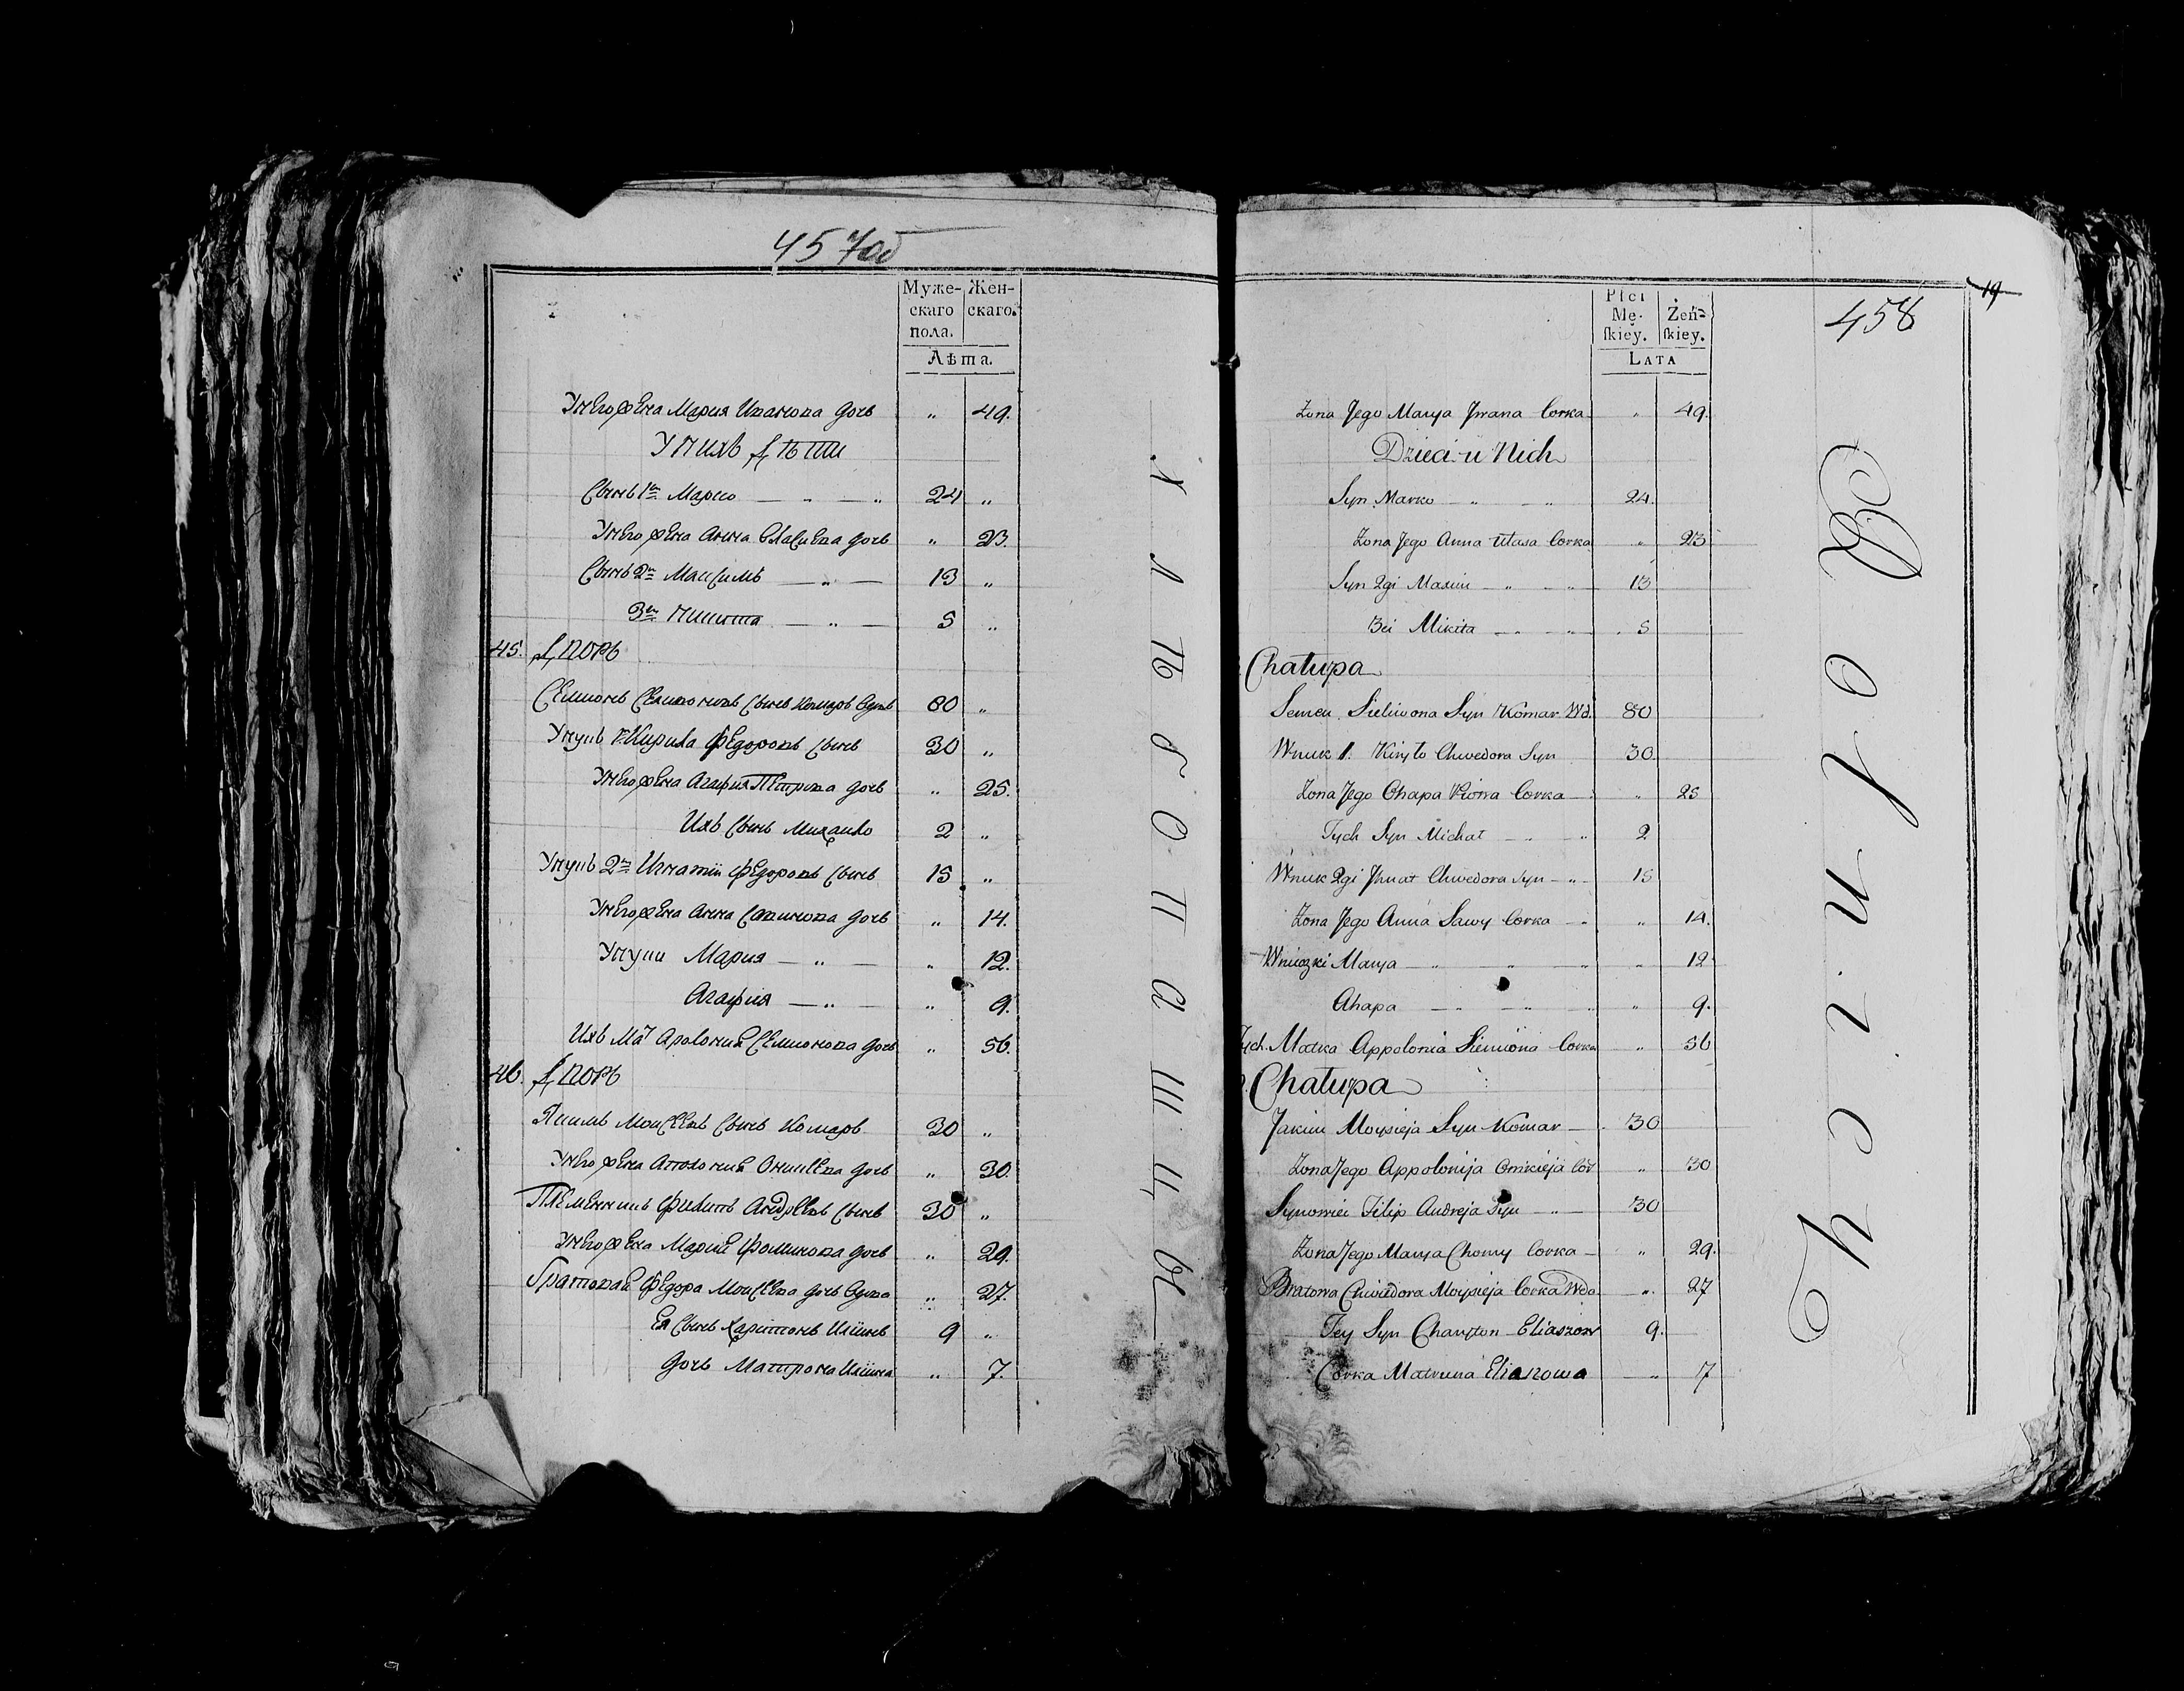 457об
Муже-
скаго
пола.
Жен-
скаго.
Лѣта.
Унего жена Мария Иванова дочь " 49.
У нихъ дѣти
Сынъ 1й Марко — " — " 24 "
Унего жена Анна Власиева дочь " 23.
Сынъ 2й Максимъ — " — 13 "
3й Никита — " — 5 "
45. Дворъ
Семионъ Селивоновъ сынъ Комаръ вдовъ 80 "
Унукъ 1й Кирила Федоровъ сынъ 30 "
Унего жена Агафия Петрова дочь " 25.
Ихъ сынъ Михайло 2 "
Унукъ 2й Игнатій Федоровъ сынъ 15 "
Унего жена Анна Савинова дочь " 14.
Унуки Мария — " — " 12.
Агафия — " — " 9.
Ихъ Мат Аполония Семионова дочь " 56.
46. Дворъ
Якимъ Моисеевъ сынъ Комаръ 30 "
Унего жена Аполония Оникиева дочь " 30.
Племенникъ Филипъ Андреевъ сынъ 30 "
Унего жена Мария Фоминова дочь " 29.
Братовая Федора Моисеева дочь вдова " 27.
Ея сынъ Харитонъ Илиинъ 9 "
дочь Матрона Илиина " 7.
х л ѣ б о п а ш ц ы
19
458
Płci
Mę-
ſkiey.
Żeń-
ſkiey.
LATA
Zona Jego Marya Jwana Corka " 49.
Dzieci u Nich
Syn Marko — " — " 24.
Zona Jego Anna Ułasa Corka " 23
Syn 2gi Maxim — " — " 13
3ci Mikita — " — " 5
Chałupa
Semen Sieliwona Syn Komar Wd. 80
Wnuk 1. Kiryło Chwedora Syn 30.
Zona Jego Ohapa Piotra Corka — " 25
Tych Syn Michał — " 2
Wnuk 2gi Jhnat Chwedora Syn — " 15
Zona Jego Anna Sawy Corka — " 14.
Wniiczki Marya — " " " " 12
Ahapa — " " " 9.
Tych Matka Appolonia Siemiona Corka " 56
Chałupa
Jakim Moysieja Syn Komar — 30
Zona Jego Appolonija Onikieja Cor " 30
Synowiei Filip Andreja Syn — " — 30
Zona Jego Marya Chomy Corka — " 29.
Bratowa Chwiedora Moysieja Corka Wdo. " 27
Jey Syn Charyton Eliaszow 9.
Corka Matruna Eliaszowa — " 7
R o l n i c y